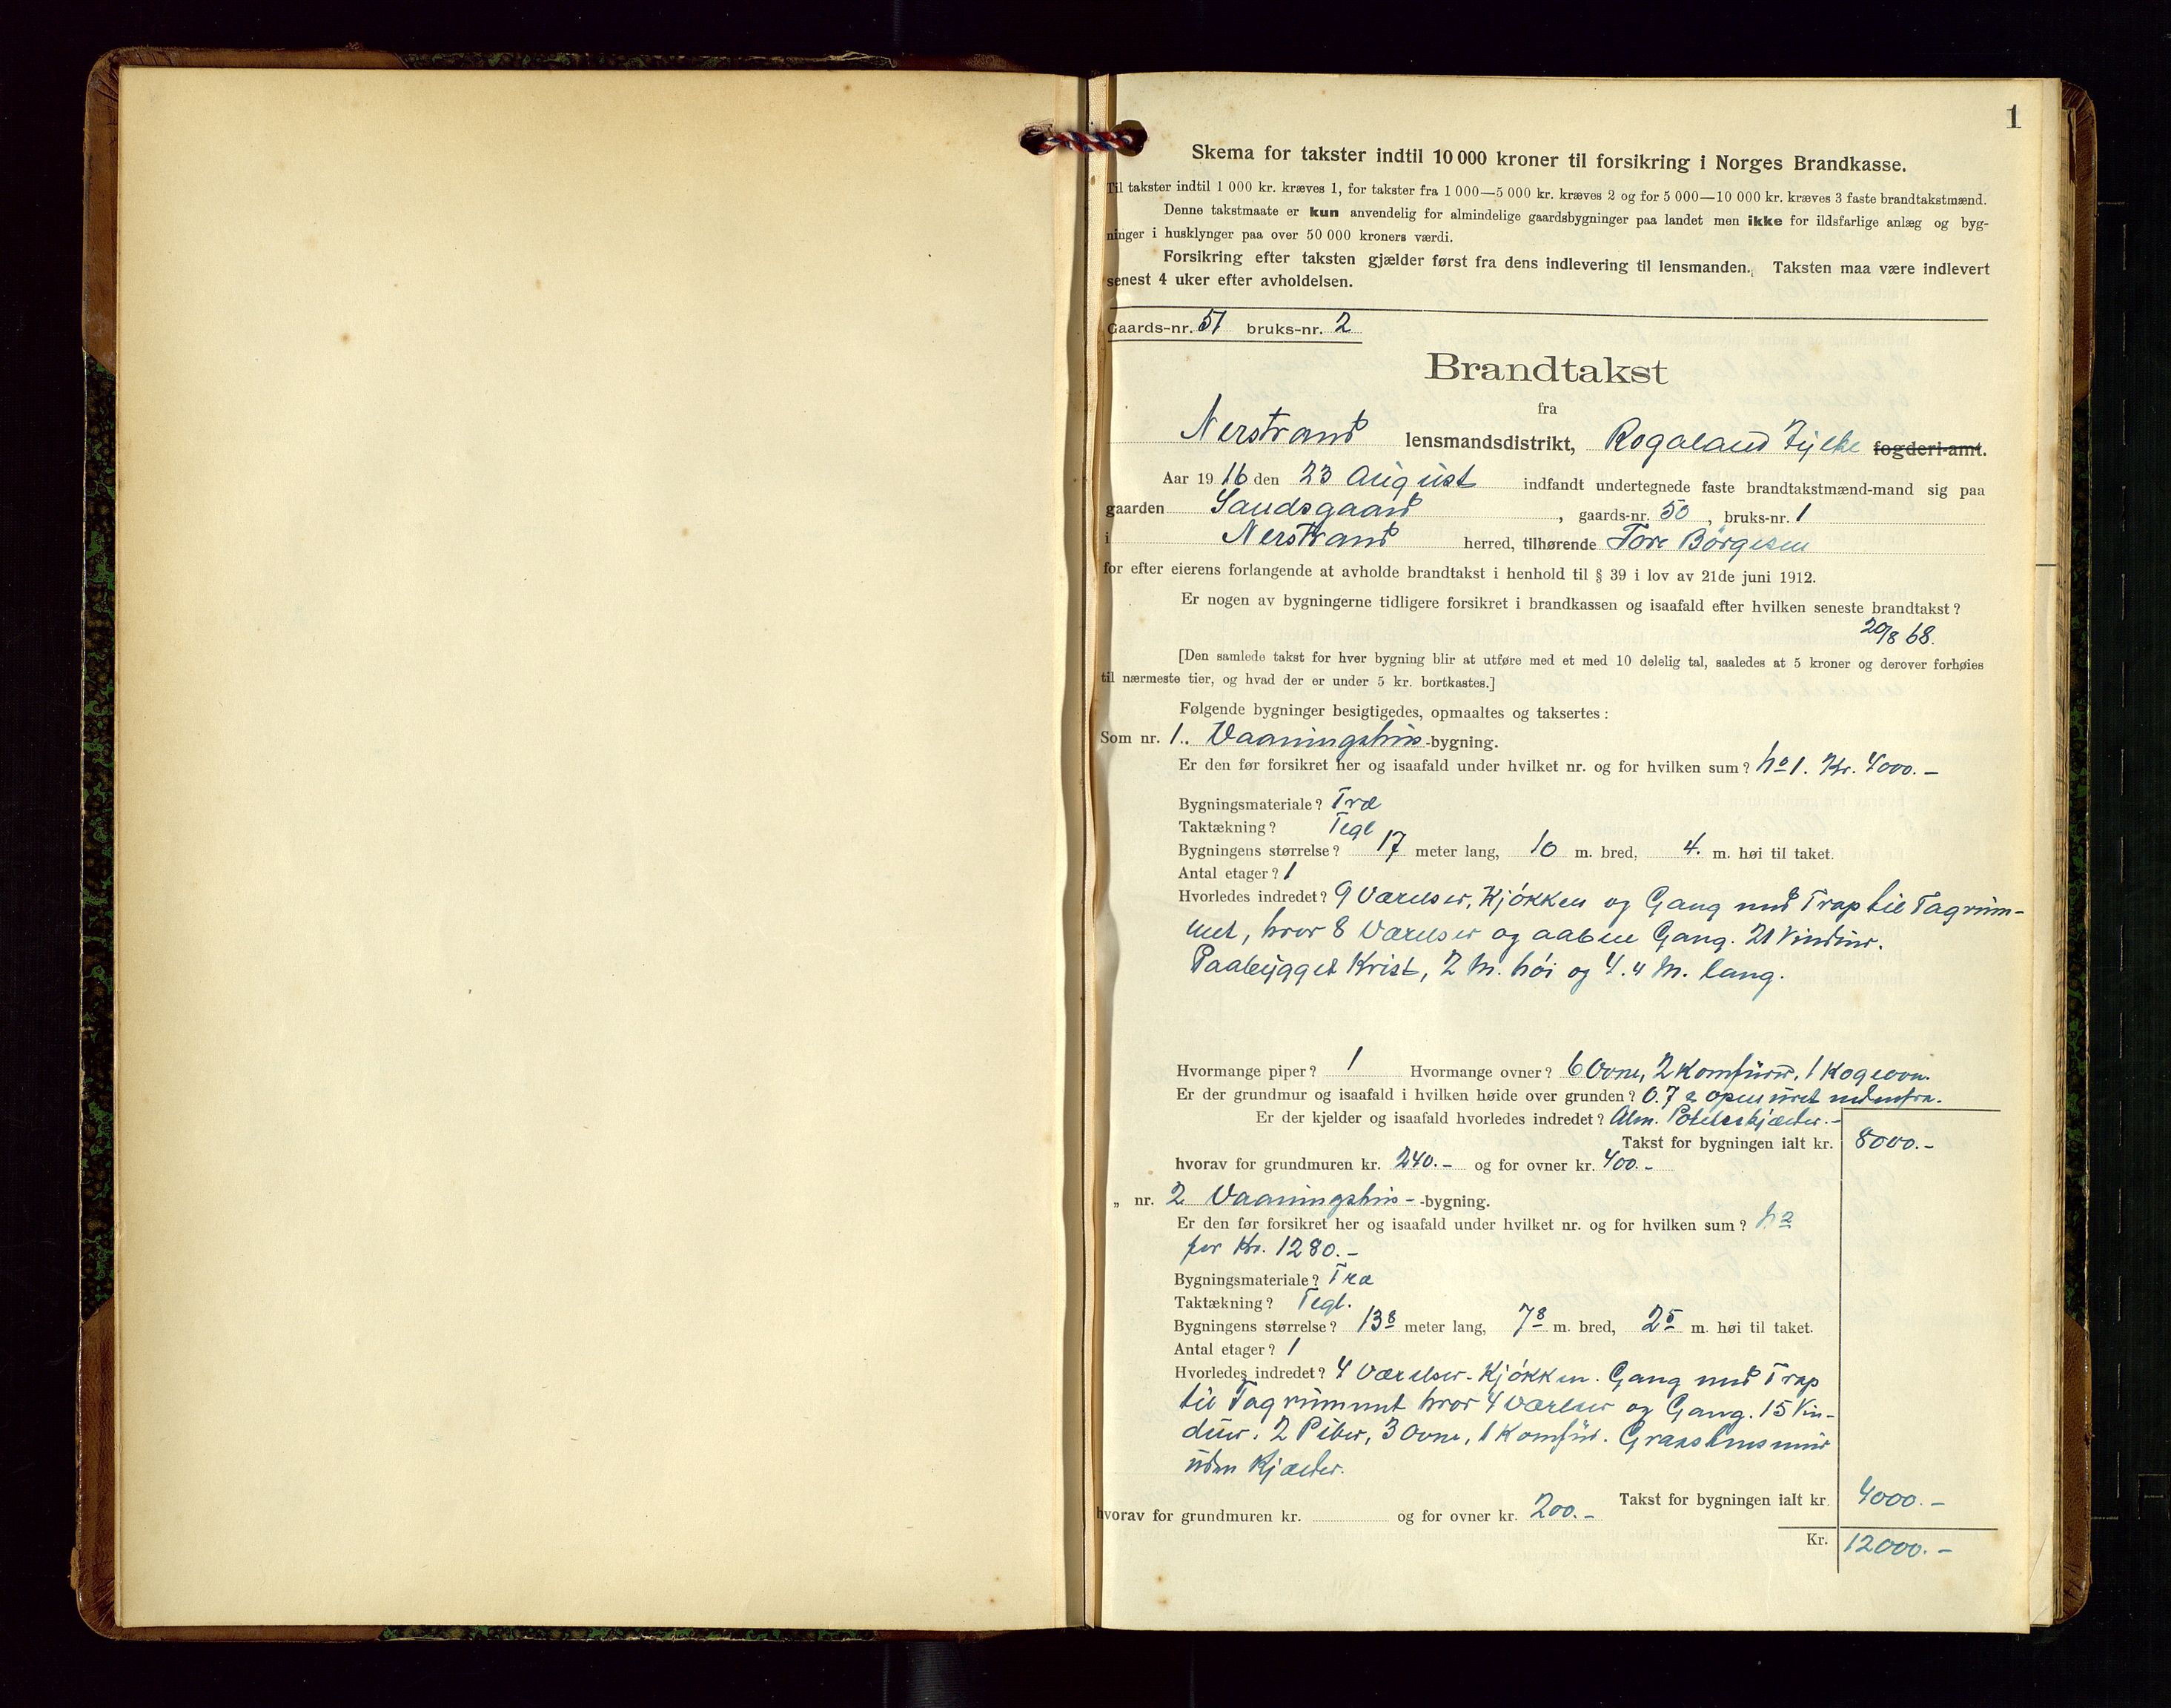 1
Skema for takster indtil 10 000 kroner til forsikring i Norges Brandkasse.
Til takster indtil 1 000 kr. kræves 1, for takster fra 1 000—5 000 kr. kræves 2 og for 5 000—10 000 kr. kræves 3 faste brandtakstmænd.
Denne takstmaate er kun anvendelig for almindelige gaardsbygninger paa landet men ikke for ildsfarlige anlæg og byg-
ninger i husklynger paa over 50 000 kroners værdi.
Forsikring efter taksten gjælder først fra dens indlevering til lensmanden. Taksten maa være indlevert
senest 4 uker efter avholdelsen.
Gaards-nr. 51 bruks-nr. 2
Brandtakst
fra
Nerstrand lensmandsdistrikt, Rogaland Fylke fogderi-amt.
Aar 1916 den 23 August indfandt undertegnede faste brandtakstmænd-mand sig paa
gaarden Sandsgaard, gaards-nr. 50, bruks-nr. 1
i Nerstrand herred, tilhørende Tore Börgesen
for efter eierens forlangende at avholde brandtakst i henhold til § 39 i lov av 21de juni 1912.
Er nogen av bygningerne tidligere forsikret i brandkassen og isaafald efter hvilken seneste brandtakst?
20/8 68.
[Den samlede takst for hver bygning blir at utføre med et med 10 delelig tal, saaledes at 5 kroner og derover forhøies
til nærmeste tier, og hvad der er under 5 kr. bortkastes.]
Følgende bygninger besigtigedes, opmaaltes og taksertes:
Som nr. 1. Vaaningshus-bygning.
Er den før forsikret her og isaafald under hvilket nr. og for hvilken sum? No 1. Kr. 4000.-
Bygningsmateriale? Træ
Taktækning? Tegl
Bygningens størrelse? 17 meter lang, 10 m. bred, 4. m. høi til taket.
Antal etager? 1
Hvorledes indredet? 9 Værelser, Kjökken og Gang med Trap til Tagrum-
met, hvor 8 Værelser og aaben Gang. 21 Vinduer.
Paabygget Krist, 2 M. höi og 4.4 M. lang.
Hvormange piper? 1 Hvormange ovner? 6 Ovne, 2 Komfurer, 1 Kogeovn.
Er der grundmur og isaafald i hvilken høide over grunden? 0.7 opmuret
Er der kjelder og isaafald hvorledes indredet? Alm. Poteteskjælder.-
Takst for bygningen ialt kr. 8000.-
hvorav for grundmuren kr. 240.- og for ovner kr. 400.-
„ nr. 2 Vaaningshus- -bygning.
Er den før forsikret her og isaafald under hvilket nr. og for hvilken sum? N 2
for Kr. 1280.-
Bygningsmateriale? Træ
Taktækning? Tegl.
Bygningens størrelse? 13 8 meter lang, 7 8 m. bred, 2 5 m. høi til taket.
Antal etager? 1
Hvorledes indredet? 4 Værelser. Kjökken. Gang med Trap
til Tagrummet hvor 4 Værelser og Gang. 15 Vin-
duer. 2 Piber, 3 Ovne, 1 Komfur. Graastensmur
uden Kjælder.
Takst for bygningen ialt kr. 4000.-
hvorav for grundmuren kr. og for ovner kr. 200.-
Kr. 12000.-